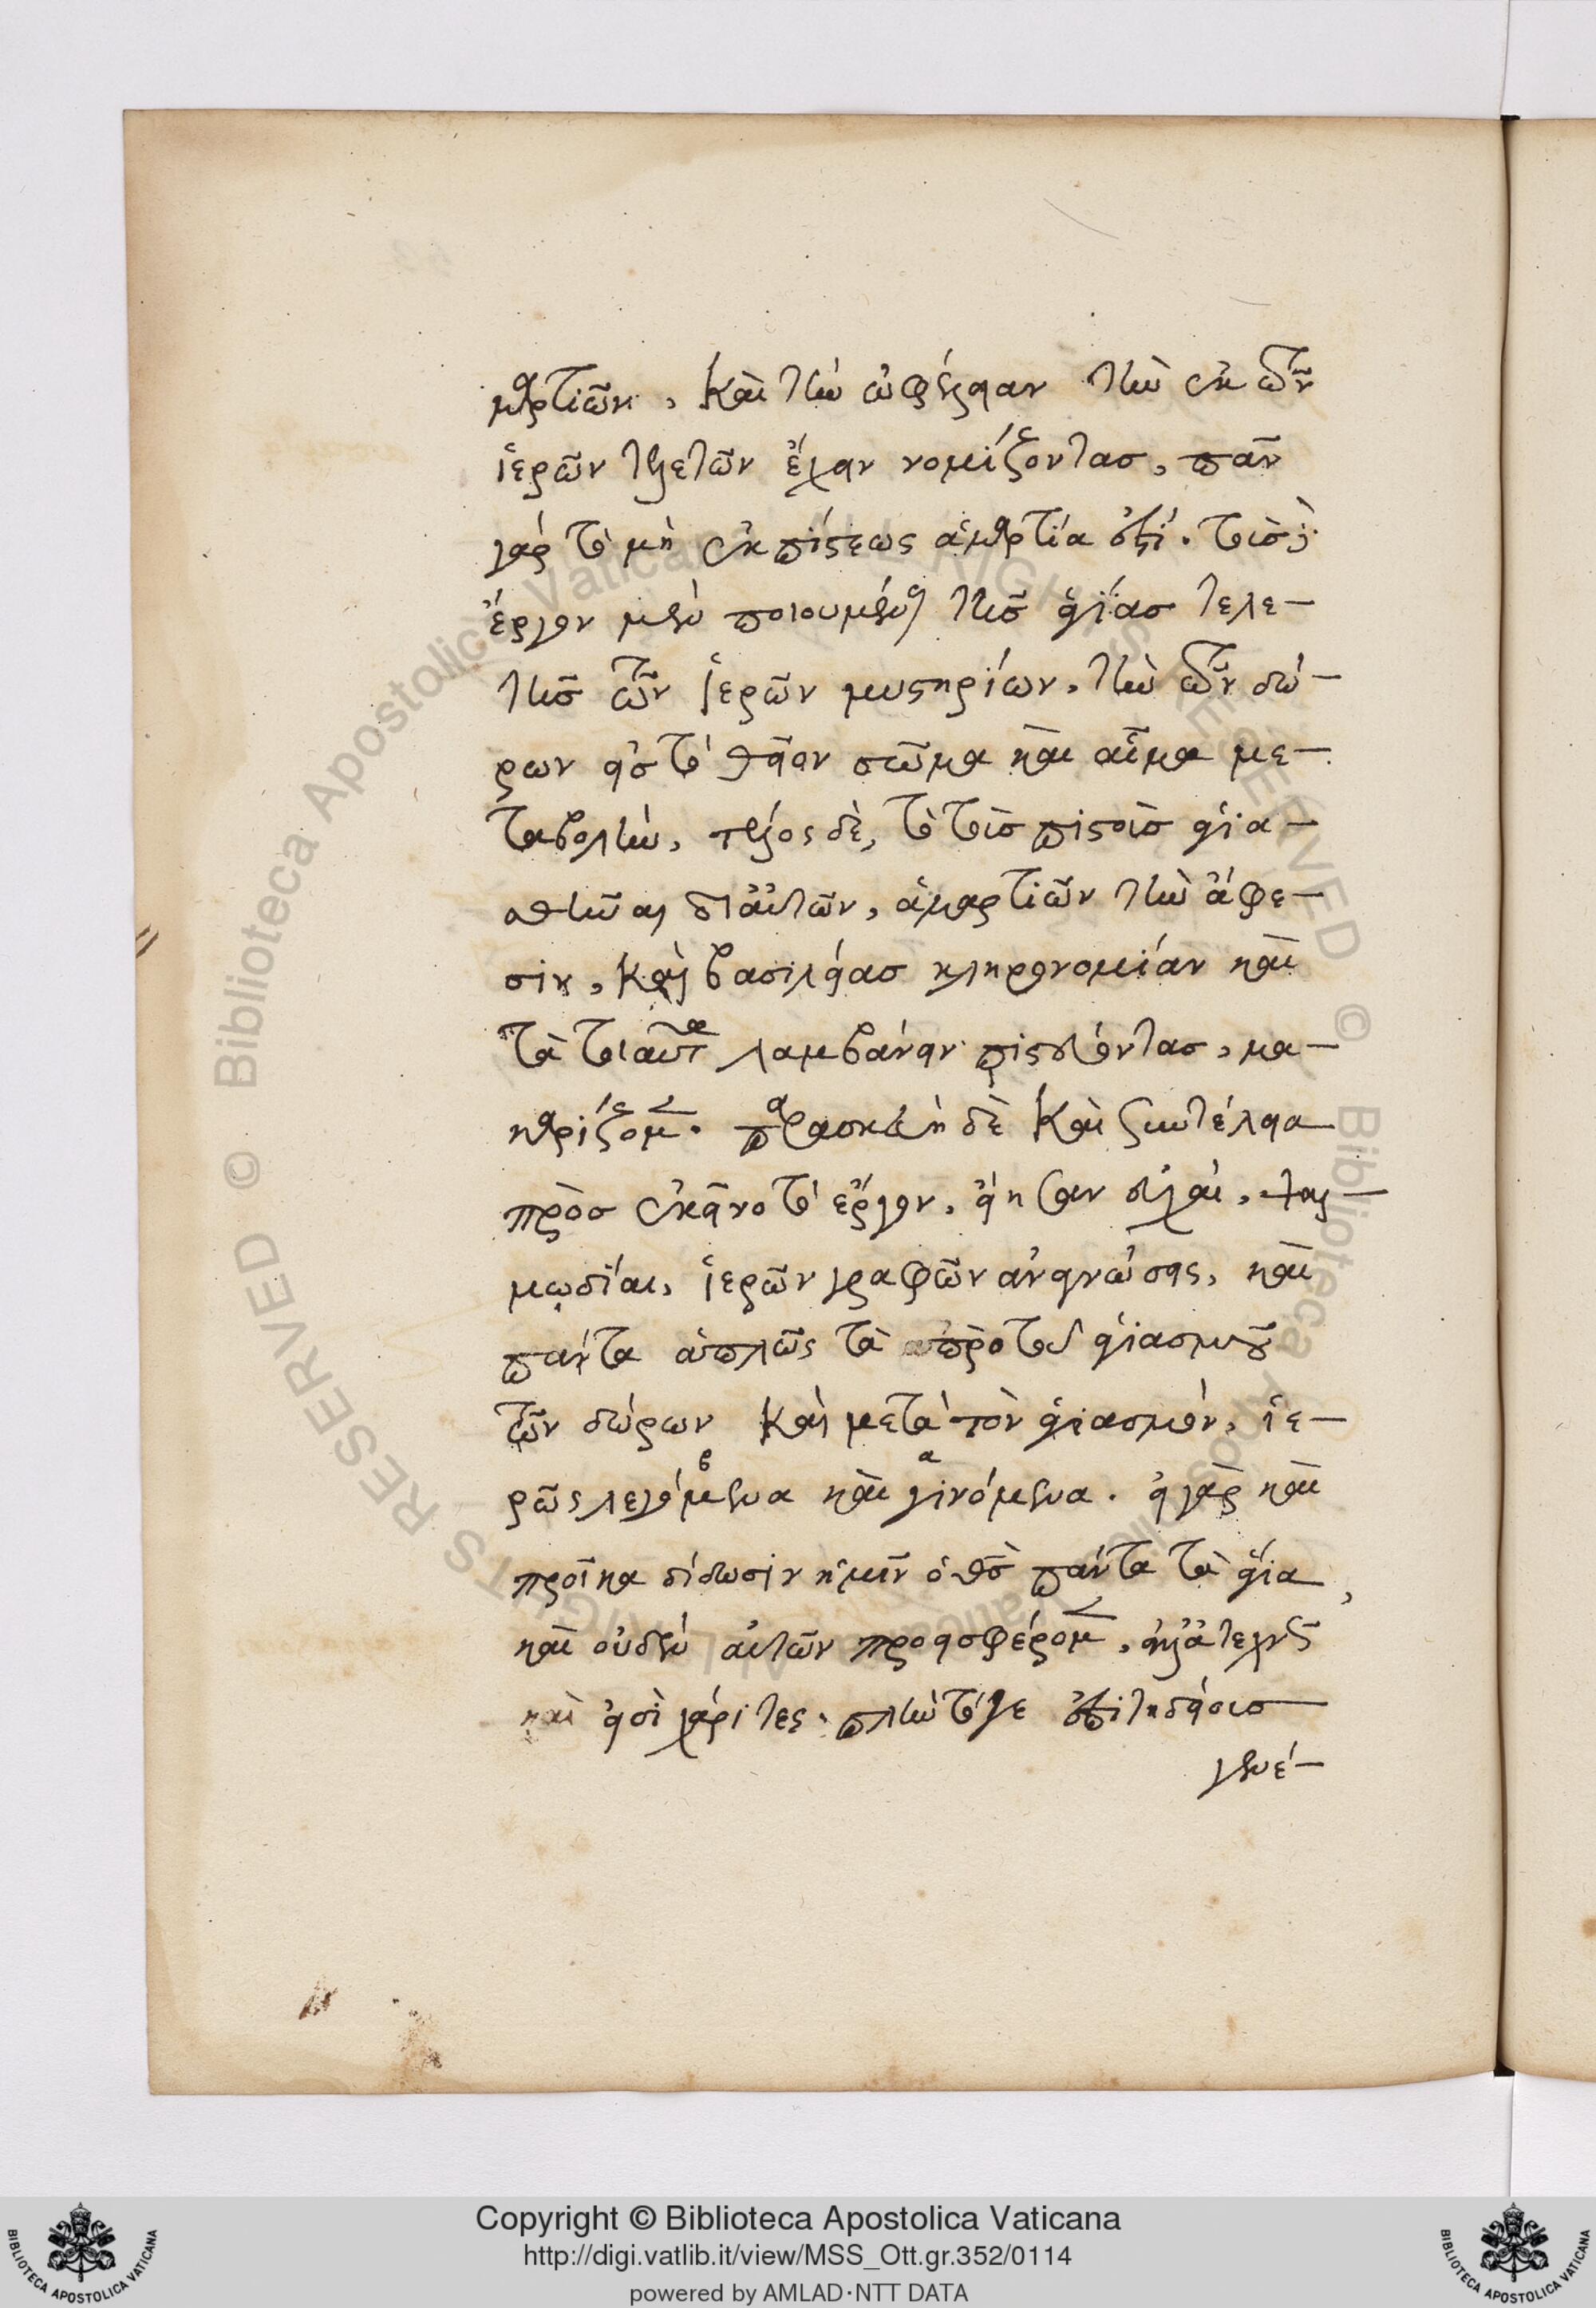 μαρτιῶν, καὶ τὴν ὠφέλειαν τὴν ἐκ τῶν
ἱερῶν τελετῶν ἔχειν νομίζοντας, πᾶν
γὰρ τὸ μὴ ἐκ πίστεως ἁμαρτία ἐστί.
ἔργον μὲν ποιουμένη τῆς ἁγίας τελε-
τῆς τῶν ἱερῶν μυστηρίων, τὴν τῶν δώ-
ρων εἰς τὸ θεῖον σῶμα καὶ αἷμα με-
ταβολὴν, τέλος δὲ, τὸ τοὺς πιστοὺς ἁγια-
σθῆναι δι' αὐτῶν, ἁμαρτιῶν τὴν ἄφε-
σιν, καὶ βασιλείας κληρονομίαν καὶ
τὰ τοιαῦτα λαμβάνειν πιστεύοντας, μα-
καρίζομεν. παρασκευὴ δὲ καὶ συντέλεια
πρὸς ἐκεῖνο τὸ ἔργον, εἰκὸν εὐχαὶ, ψαλ-
μῳδίαι, ἱερῶν γραφῶν ἀναγνώσεις, καὶ
πάντα ἁπλῶς τὰ πρὸ τοῦ ἁγιασμοῦ
τῶν δώρων καὶ μετὰ τὸν ἁγιασμὸν, ἱε-
ρῶς λεγόμενα καὶ γινόμενα. εἰ γὰρ καὶ
προῖκα δίδωσιν ἡμῖν ὁ θεὸς πάντα τὰ ἅγια,
καὶ οὐδὲν αὐτῶν προεισφέρομεν, ἀλλ' ἀτεχνῶς
καὶ εἰσὶ χάριτες. πλὴν τό γε ἐπιτηδείους
γενέ-